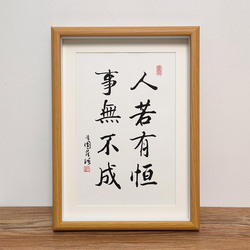 人若有恒
事無不成